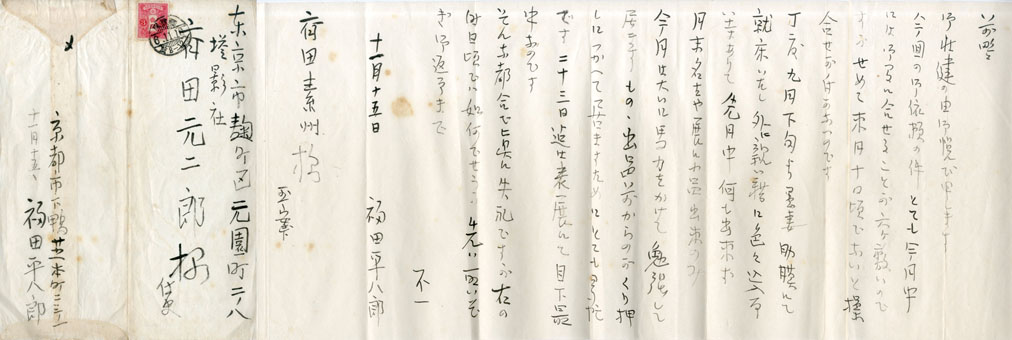 前略
御壮健の由御悦び申します
今回の御依頼の件 とても今月中
には御間に合せることが六ヶ敷いので
すが せめて来月十日頃でないと
合せが付かないのです
丁度九月下旬より愚妻肋膜にて
就床いたし 外に親い に色々込入
ありて先月中 何も出来ず
月末名古や展に出品出来
今月は大いに馬力をかけて勉強して
居ります もの、出品前からのおくり押
しにつかへて居ますためにとても多忙
です 二十三日迄 表展にて目下最
中なのです
そんな都合で甚だ失礼ですが右の
十日頃では如何でせうか
ぎ御返事まで
不一
十一月十五日 福田平八郎
斎田素州様
玉案
東京市麹町区元園町二ノ八
塔影社
斎田元二郎様
侍史
京都市下鴨 木町
十一月十五日 福田平八郎